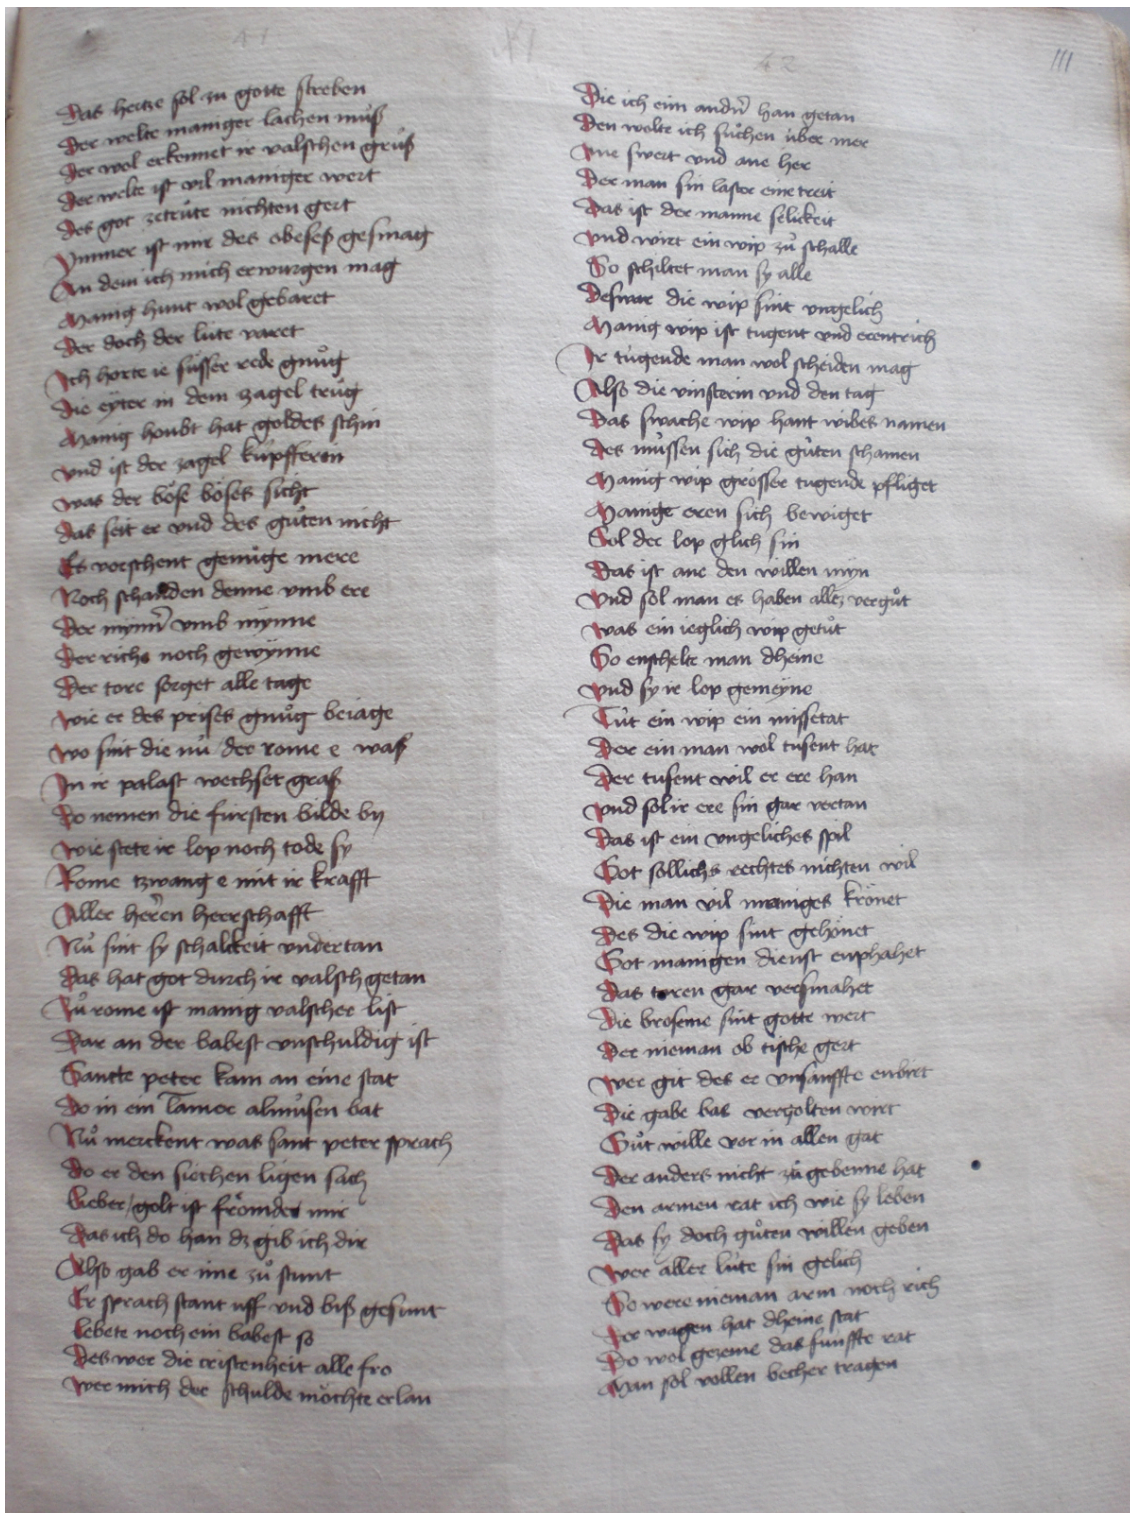 41
XI
42
111
Das hertze sol zu gotte streben
Der welte maniger lachen muͦß
Der wol erkennet ir valschen gruͦß
Der welte ist vil maniger wert
Des got zetruͯte nichten gert
Ymmer ist mir des obeses gesmag
An dem ich mich erwurgen mag
Manig hunt wol gebaret
Der doch der lute varet
Ich horte ie suͯsser rede gnuͦg
Die eyter in dem zagel truͦg
Manig houbt hat goldes schin
Vnd ist der zagel kupfferin
Was der boͤse boͤses sicht
Das seit er vnd des guͦten nicht
Es vorschent genuͦge mere
Noch schanden denne vmb ere
Der mynn̄ vmb mynne
Der riche noch gewynne
Der tore sorget alle tage
Wie er des prises gnuͦg beiage
Wo sint die nuͦ der rome e waß
In ir palast wechset graß
Do nemen die fursten bilde by
Wie stete ir lop noch tode sy
Rome tzwang e mit ir krafft
Aller herren heerschafft
Nuͦ sint sy schalckeit vndertan
Das hat got durch ir valsch getan
Zuͦ rome ist manig valscher list
Dar an der babest vnschuldig ist
Sancte peter kam an eine stat
Do in ein lamer almuͦsen bat
Nuͦ merckent was sant peter sprach
Do er den siechen ligen sach
Lieber/ golt ist froͤmder mir
Das ich do han dz gib ich dir
Also gab er ime zuͦ stunt
Er sprach stant uff vnd biß gesunt
Lebete noch ein babest so
Des wer die cristenheit alle fro
Wer mich der schulde moͤchte erlan
Die ich eim andn̄ han getan
Den wolte ich suͦchen uͯber mer
Ane swert vnd ane her
Der man sin laster eine treit
Das ist der manne selickeit
Vnd wirt ein wip zuͦ schalle
So schiltet man sy alle
Deswar die wip sint vngelich
Manig wip ist tugent vnd erentrich
Ir tugende man wol scheiden mag
Also die vinsterin vnd den tag
Das swache wip hant wibes namen
Des muͯssen sich die guͦten schamen
Manig wip groͤsser tugende pfliget
Manige eren sich bewiget
Sol der lop glich sin
Das ist ane den willen myn
Vnd sol man es haben allez verguͦt
Was ein ieglich wip getuͦt
So enschelte man dheine
Vnd sy ir lop gemeyne
Tuͦt ein wip ein missetat
Der ein man wol tusent hat
Der tusent wil er ere han
Vnd sol ir ere sin gar vertan
Das ist ein vngeliches spil
Got sollichs rechtes nichten wil
Die man vil maniges kroͤnet
Des die wip sint gehoͤnet
Got manigen dienst enphahet
Das toren gar versmahet
Die broseme sint gotte wert
Der nieman ob tische gert
Wer git des er vnsanffte enbirt
Die gabe bas vergolten wirt
Guͦt wille vor in allen gat
Der anders nicht zuͦ gebenne hat
Den armen rat ich wie sy leben
Das sy doch guͦten willen geben
Wer aller luͯte sin gelich
So were nieman arm noch rich
Der wagen hat dheine stat
Do wol gezeme das funffte rat
Man sol vollen becher tragen